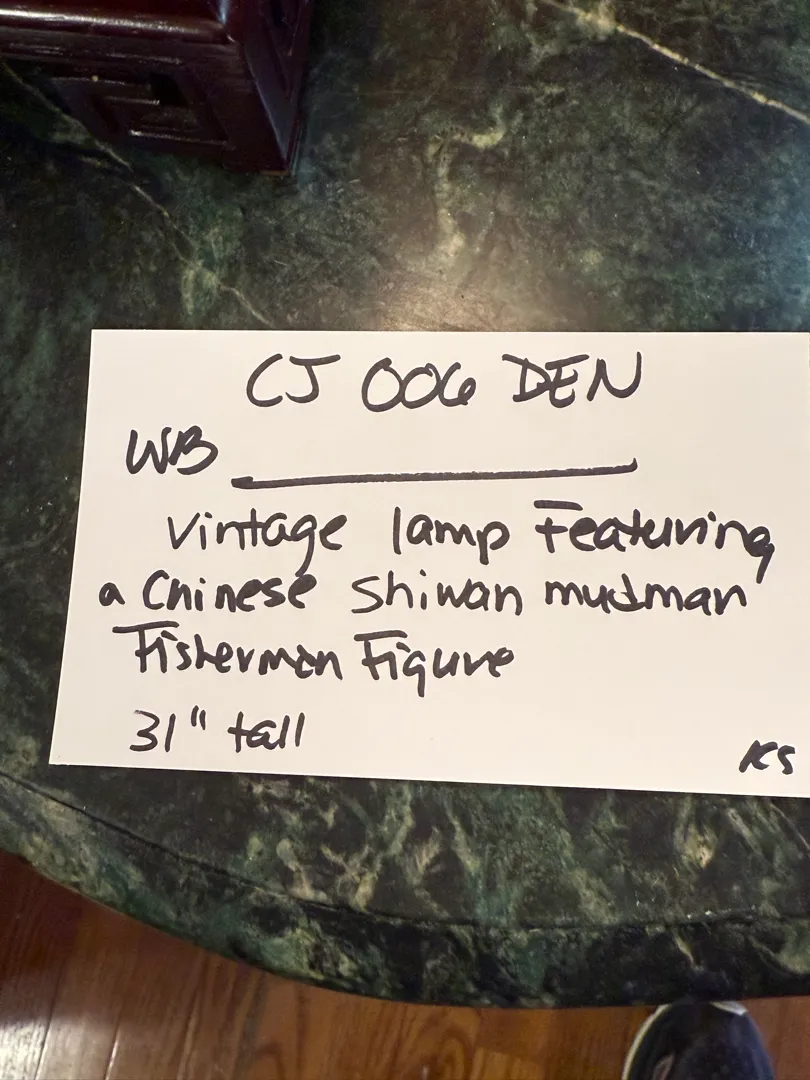 CJ 006 DEN
WB
Vintage lamp Featuring
a Chinese Shiwan mudman
Fisherman Figure
31" tall
KS